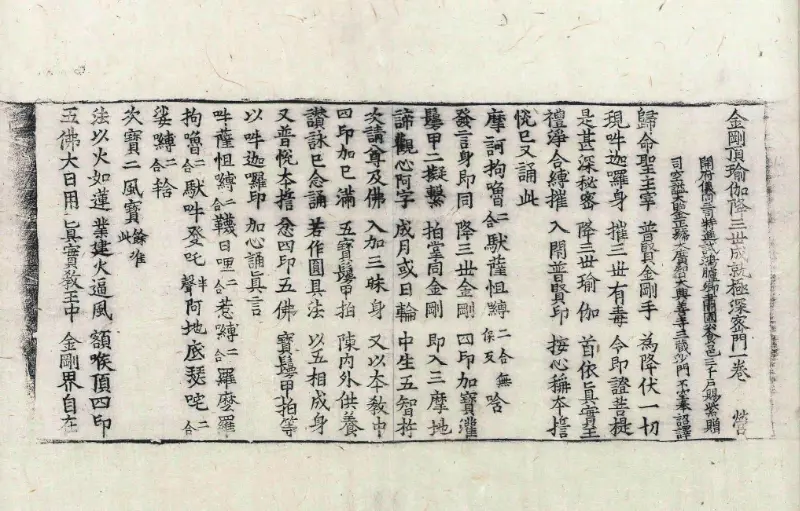 金剛頂瑜伽降三世成就極深密門一卷 營
開府儀同三司特進試鴻臚卿肅國公食邑三千戶賜紫贈
司空謚大鑒正號大廣智大興善寺三藏沙門不空奉 詔譯
歸命聖主宰 普賢金剛手 為降伏一切
現吽迦羅身 摧三世有毒 令即證菩提
是甚深秘密 降三世瑜伽 首依真實王
禮淨合縛摧 入開普賢印 按心稱本誓
悅已又誦此
摩訶拘嚕二合馱薩怛縛二合無保反唅
發言身即同 降三世金剛 四印加寶灌
鬘甲二擬繫 拍掌同金剛 即入三摩地
諦觀心阿字 成月或日輪 中生五智杵
次請尊及佛 入加三昧身 又以本教中
四印加已滿 五寶鬘甲拍 陳內外供養
讚詠已念誦 若作圓具法 以五相成身
又普悅本誓 念四印五佛 寶鬘甲拍等
以吽迦羅印 加心誦真言
吽薩怛縛二合韈日哩二合惹縛二合羅麼羅
拘嚕二合馱吽發吒半聲阿地底瑟吒二合
娑縛二合𤙖
次寶二風寶餘准此
法以火如蓮 業建火逼風 額喉頂四印
五佛大日用 真實教王中 金剛界自在